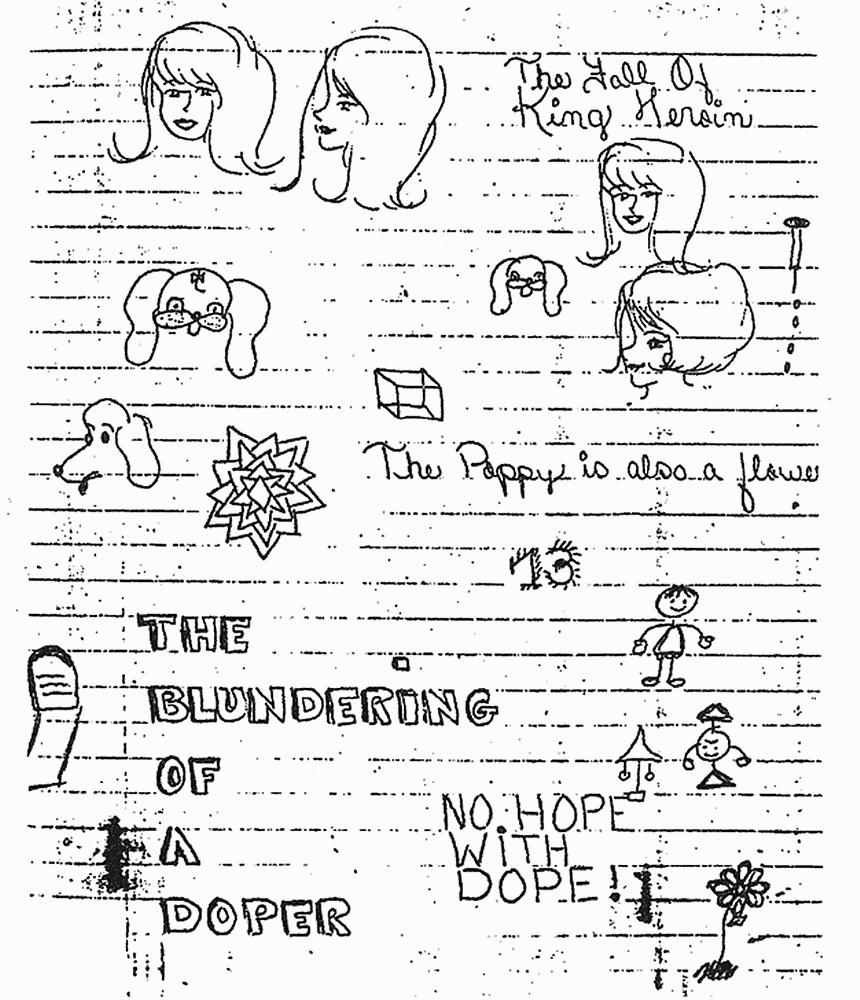 The Fall Of
King Heroin
The Poppy is also a flowe
13
THE
BLUNDERING
OF
A
DOPER
NO HOPE
WITH
DOPE!